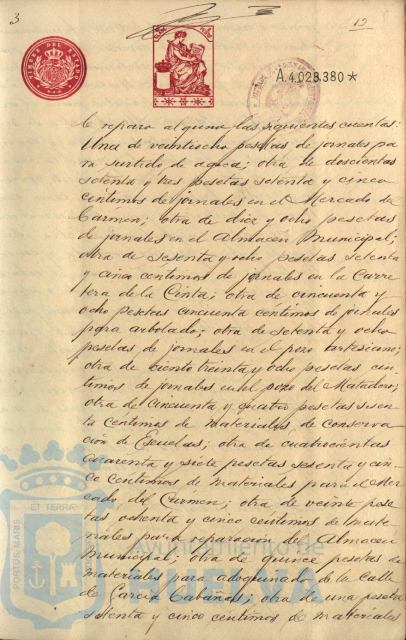 3
12
TIMBRE DEL ESTADO
A.4.028.380*
reparo alguno las siguientes cuentas:
Una de veintiocho pesetas de jornales pa
ra surtido de aguas; otra de doscientas
setenta y tres pesetas setenta y cinco
céntimos de jornales en el Mercado del
Carmen; otra de diez y ocho pesetas
de jornales en el Almacen Municipal;
otra de sesenta y ocho pesetas setenta
y cinco centimos de jornales en la Carre
tera de la Cinta; otra de cincuenta y
ocho pesetas cincuenta centimos de jornales
para arbolado; otra de setenta y ocho
pesetas de jornales en el pozo artesiano;
otra de ciento treinta y ocho pesetas cén
timos de jornales en el pozo del Matadero;
otra de cincuenta y cuatro pesetas sesen
ta centimos de materiales de conserva
ción de Escuelas; otra de cuatrocientas
cuarenta y siete pesetas sesenta y cin
co centimos de materiales para el Mer
cado del Carmen; otra de veinte pese
tas ochenta y cinco centimos de mate
riales para reparación del Almacen
Municipal; otra de quince pesetas de
materiales para adoquinado de la Calle
de García Cabañas; otra de una peseta
setenta y cinco centimos de materiales
PORTUS MARIS ET TERRAE
Ayuntamiento de